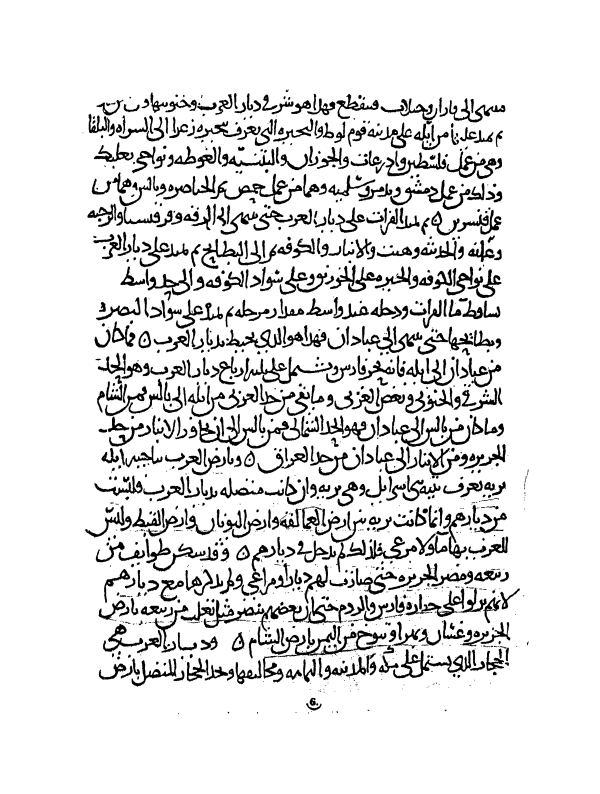 فينقطع فهذا هو شرقى ديار العرب وجنوبيها
ثم يمتد عليها من ايله على مدينه قوم لوط والبحيره التى تعرف ببحيره زغر الى الشراه والبلقا
وهى من عمل فلسطين واذرعات والحوران والبثنيه والغوطه ونواحى بعلبك
وذلك من عمل دمشق وتدمر وسلميه وهما من عمل حمص ثم الخناصره وبالس وهما من
عمل قنسرين ثم يمتد الفرات على ديار العرب حتى ينتهى الى الرقه وقرقيسيا والرحبه
وعانه والحديثه وهيت والانبار والكوفه ثم الى البطايح ثم يمتد على ديار العرب
على نواحى الكوفه والحيره على الخورنق وعلى سواد الكوفه والى حد واسط
ما الفرات ودجله عند واسط مقدار مرحله ثم يمتد على سواد البصره
وبطايحها حتى ينتهى الى عبادان فهذا هو الذى يحيط بديار العرب ۝ فما كان
من عبادان الى ايله فانه بحر فارس ويشتمل على ثلثة ارباع ديار العرب وهو الحد
الشرقى والجنوبى وبعض الغربى وما بقى من حد الغربى من ايله الى بالس فمن الشام
وما كان من بالس الى عبادان فهو الحد الشمالى فمن بالس الى ان تجاوز الانبار من حد
الجزيره ومن الانبار الى عبادان من حد العراق ۝ وبارض العرب بناحيه ايله
بريه تعرف بتيه بنى اسرايل وهى بريه وان كانت متصله بديار العرب فليست
من ديارهم وانما كانت بريه بين ارض العمالقه وارض اليونان وارض القبط وليس
للعرب بها ما ولا مرعى فلذلك لم يدخل فى ديارهم ۝ وقد سكن طوايف من
ربيعه ومضر الجزيره حتى صارت لهم ديارا ومراعى ولم نذكرها مع ديارهم
لانهم نزلوا على حداره فارس والروم حتى ان بعضهم تنصر مثل تغلب من ربيعه بارض
الجزيره وغسان وبهرا وتنوخ من اليمن بارض الشام ۝ وديار العرب هى
الحجاز الذى يشتمل على مكه والمدينه واليمامه ومخاليفها وحد الحجاز المتصل بارض
6